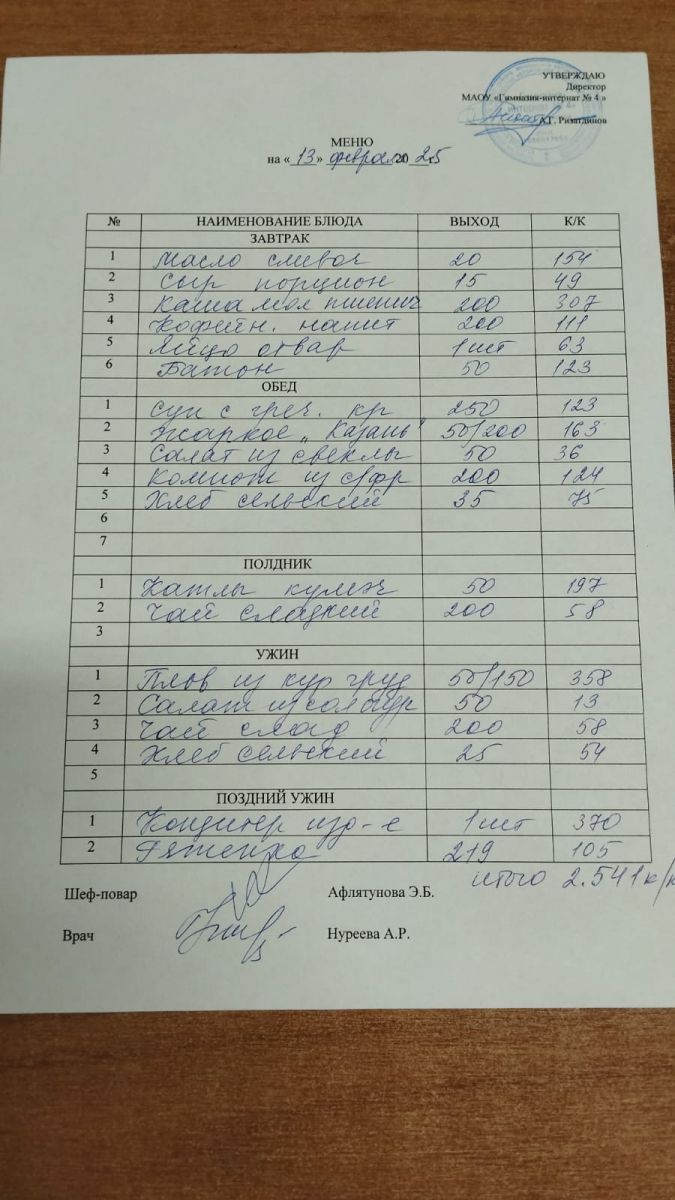 УТВЕРЖДАЮ
Директор
МАОУ «Гимназия-интернат № 4 »
А.Г. Ризатдинов
МЕНЮ
на « 13 » февраля 20 25
№ НАИМЕНОВАНИЕ БЛЮДА ВЫХОД К/К
ЗАВТРАК
1 Масло сливоч 20 154
2 Сыр порцион 15 49
3 Каша мол пшенич 200 307
4 Кофейн. напит 200 111
5 Яйцо отвар 1 шт 63
6 Батон 50 123
ОБЕД
1 Суп с греч. кр 250 123
2 Жаркое „Казань" 50/200 163
3 Салат из свеклы 50 36
4 Компот из с/фр 200 124
5 Хлеб сельский 35 75
6
7
ПОЛДНИК
1 Катлы кулмэч 50 197
2 Чай сладкий 200 58
3
УЖИН
1 Плов из кур груд 50/150 358
2 Салат из сол огур 50 13
3 Чай слад 200 58
4 Хлеб сельский 25 54
5
ПОЗДНИЙ УЖИН
1 Кондитер изд-е 1 шт 370
2 Ряженка 219 105
итого 2.541 к/к
Шеф-повар Афлятунова Э.Б.
Врач Нуреева А.Р.